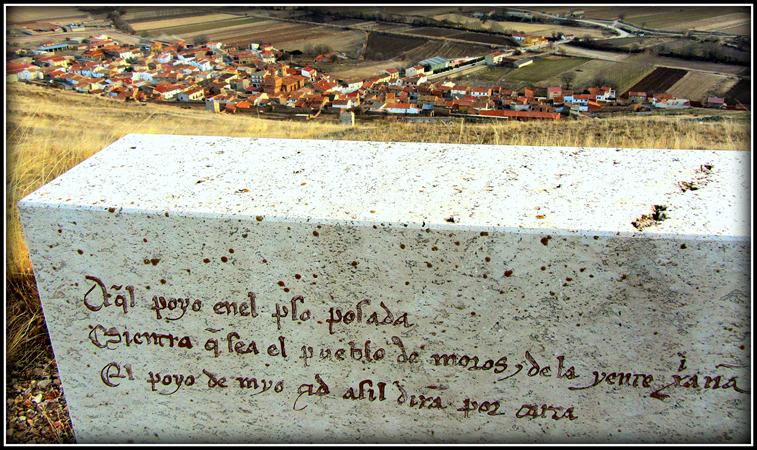 Aq̃l poyo enel p̃so posada
Mientra q̃ sea el pueblo de moros ⁊ dela yente xiana
El poyo de myo çid asil dirã por carta